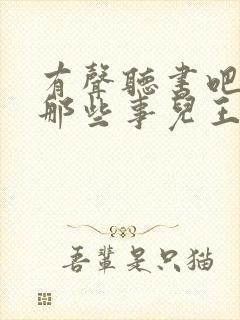 有聲聽書吧
那些事兒王
吾輩是只猫